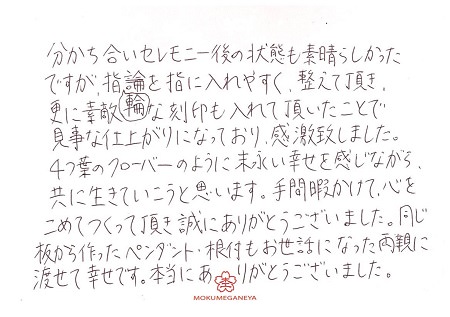 分かち合いセレモニー後の状態も素晴らしかった
ですが、指論を指に入れやすく、整えて頂き、
輪
更に素敵な刻印も入れて頂いたことで
見事な仕上がりになっており、感激致しました。
4つ葉のクローバーのように末永い幸せを感じながら、
共に生きていこうと思います。手間暇かけて、心を
こめてつくって頂き誠にありがとうございました。同じ
板から作ったペンダント・根付もお世話になった両親に
渡せて幸せです。本当にありがとうございました。
MOKUMEGANEYA